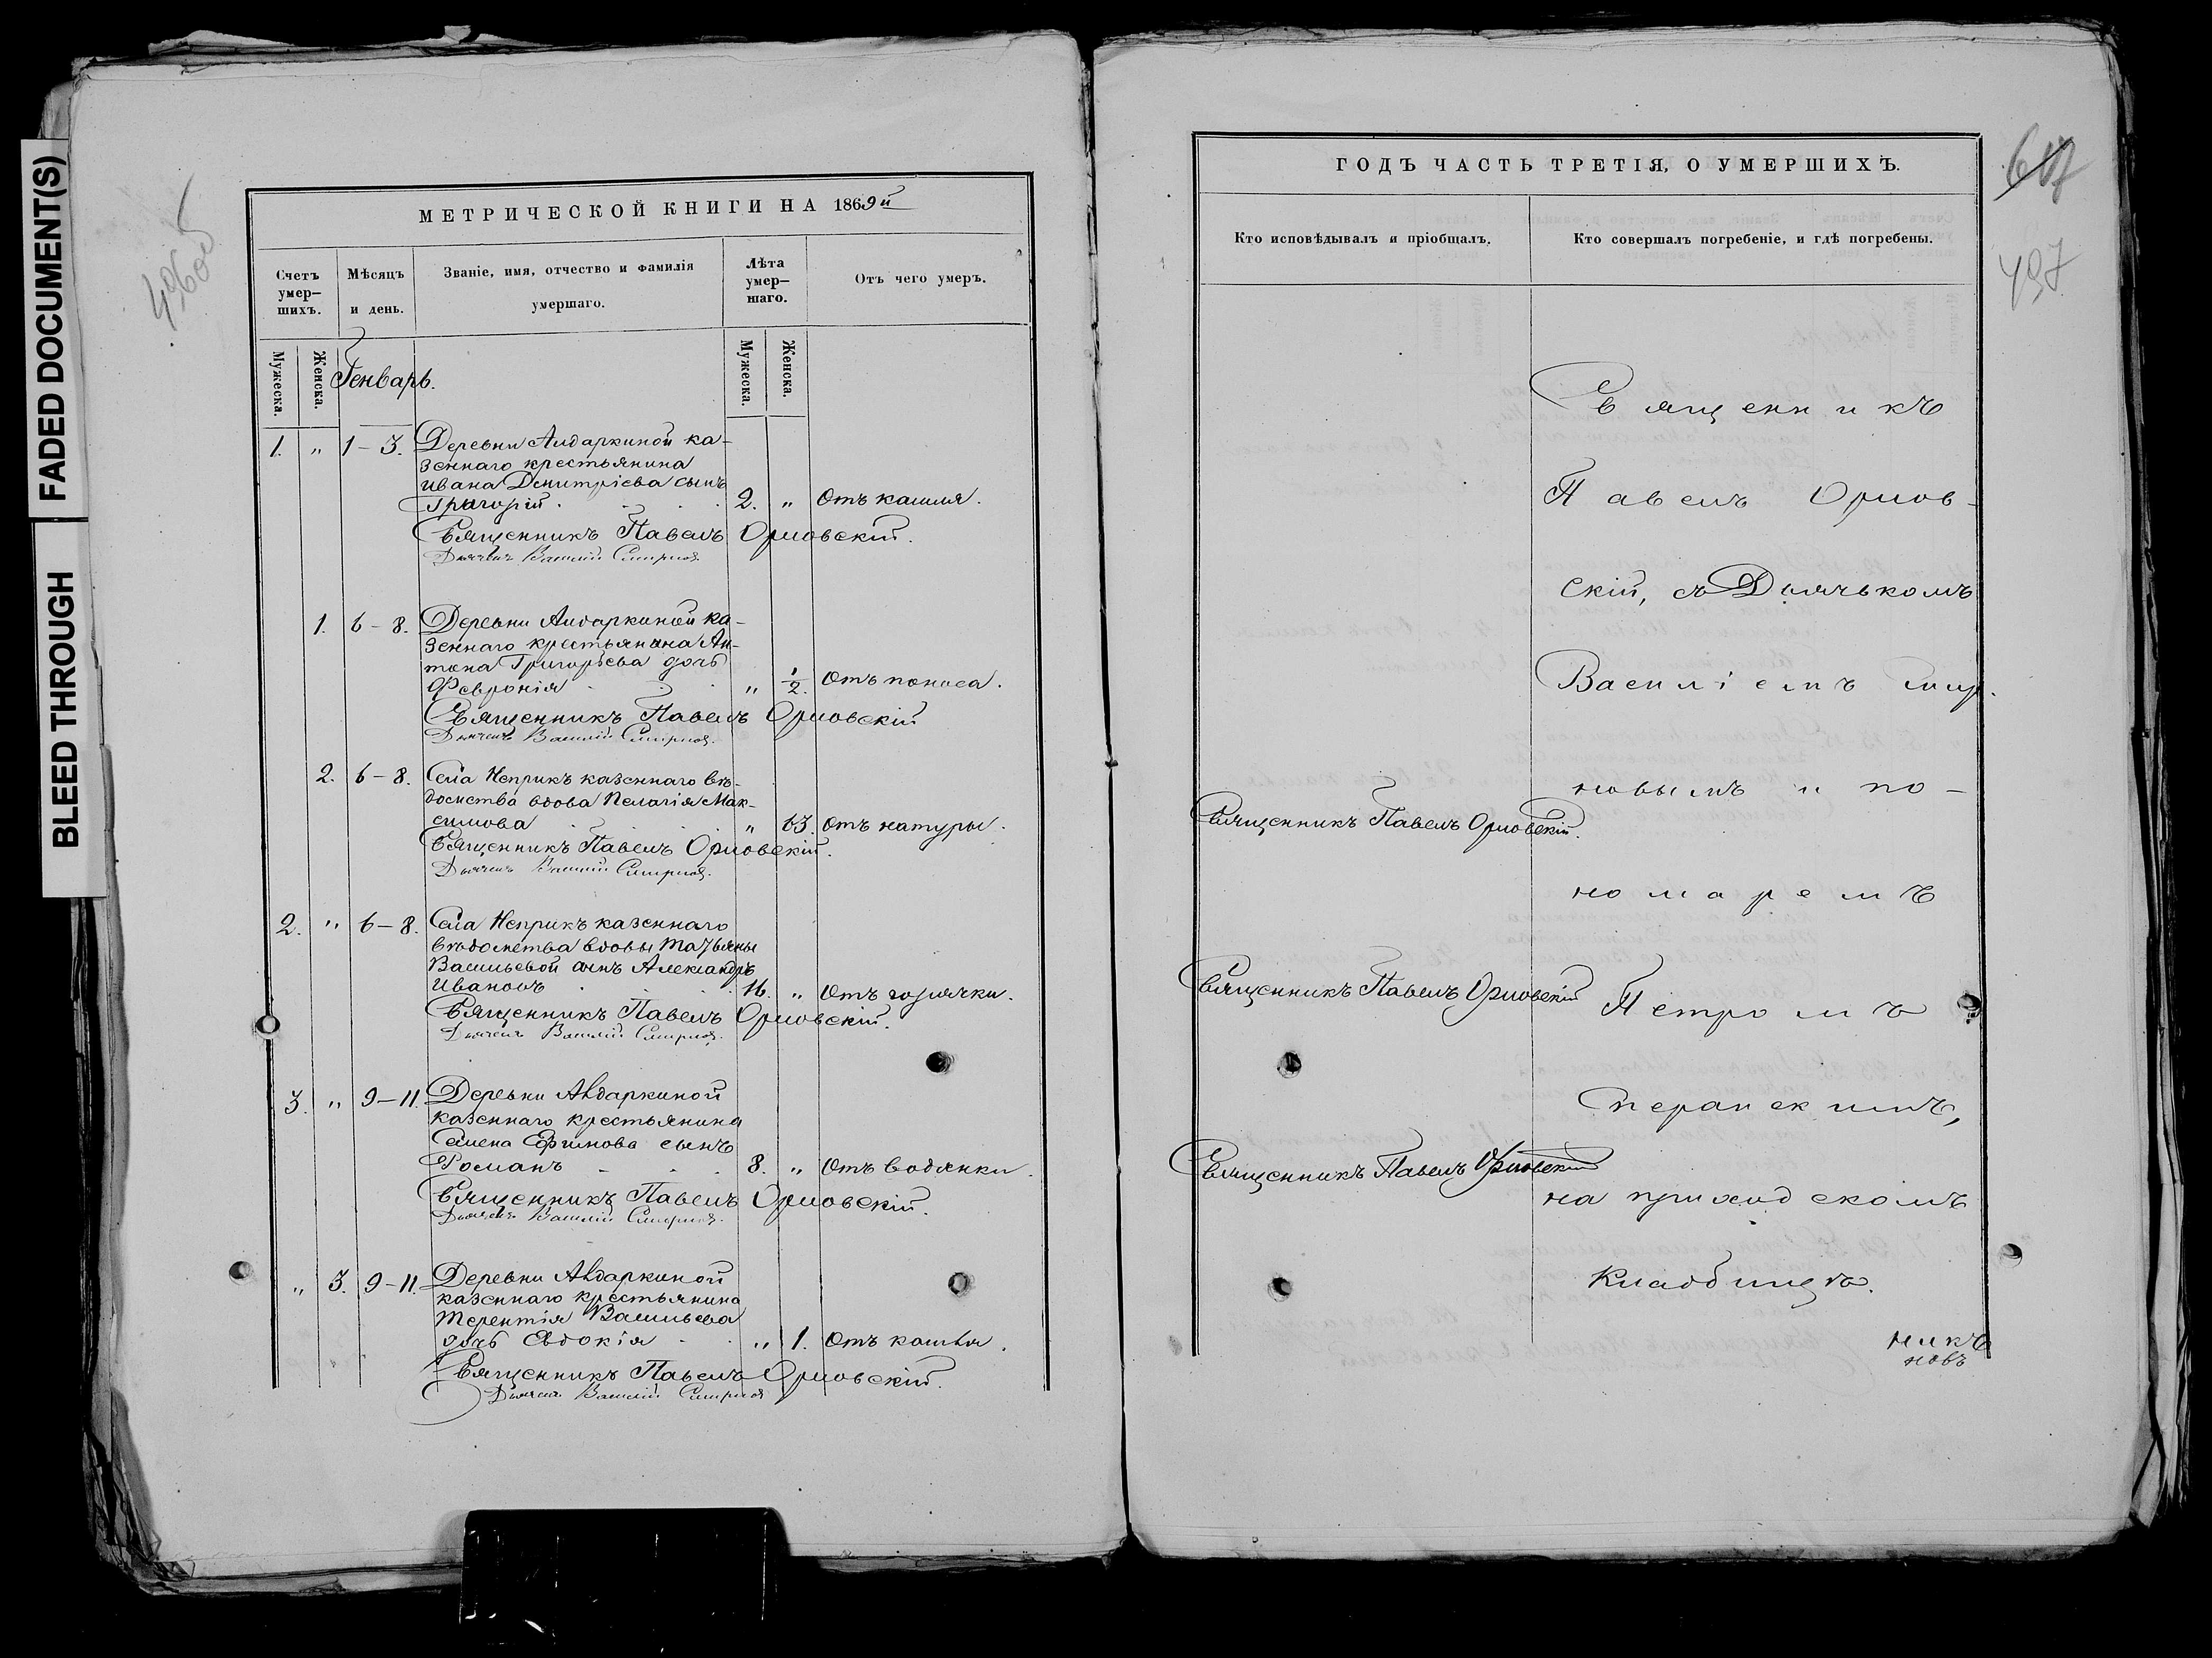 FADED DOCUMENT(S)
BLEED THROUGH
МЕТРИЧЕСКОЙ КНИГИ НА 1869й
Счетъ умер-
шихъ.
Мѣсяцъ
и день.
Званіе, имя, отчество и фамилія
умершаго.
Лѣта
умер-
шаго.
Отъ чего умеръ.
Мужеска.
Женска.
Генварь.
Мужеска.
Женска.
1. " 1-3. Деревни Аидаркиной ка-
зеннаго крестьянина
Ивана Димитріева сынъ
Григорій . . . 2. " Отъ кашля.
Священникъ Павелъ Орловскій.
Дьячекъ Василій Смирновъ
1. 6-8. Деревни Аидаркиной ка-
зеннаго крестьянина Ан-
тона Григорьева дочь
Февронія . . . " 1/2. Отъ поноса.
Священникъ Павелъ Орловскій
Дьячекъ Василій Смирновъ.
2. 6-8. Села Неприкъ казеннаго вѣ-
домства вдова Пелагія Мак-
симова . . . " 63. Отъ натуры.
Священникъ Павелъ Орловскій.
Дьячекъ Василій Смирновъ.
2. " 6-8. Села Неприкъ казеннаго
вѣдомства вдовы Татьяны
Васильевой сынъ Александръ
Ивановъ . . . 16. " Отъ горячки.
Священникъ Павелъ Орловскій.
Дьячекъ Василій Смирновъ.
3. " 9-11. Деревни Авдаркиной
казеннаго крестьянина
Семена Ефимова сынъ
Романъ - . . 8. " Отъ водянки.
Священникъ Павелъ Орловскій.
Дьячекъ Василій Смирновъ.
" 3. 9-11. Деревни Авдаркиной
казеннаго крестьянина
Терентія Васильева
дочь Евдокія . . " 1. Отъ кашля.
Священникъ Павелъ Орловскій.
Дьячекъ Василій Смирновъ
ГОДЪ ЧАСТЬ ТРЕТІЯ, О УМЕРШИХЪ.
497
Кто исповѣдывалъ и пріобщалъ.
Кто совершалъ погребеніе, и гдѣ погребены.
Священникъ
Павелъ Орлов-
скій, съ Дьячькомъ
Василіемъ Смир-
новымъ и по-
Священникъ Павелъ Орловскій.
номаремъ
Священникъ Павелъ Орловскій
Петромъ
Сперанскимъ,
Священникъ Павелъ Орловскій
на приходскомъ
кладбищѣ.
никъ
новъ